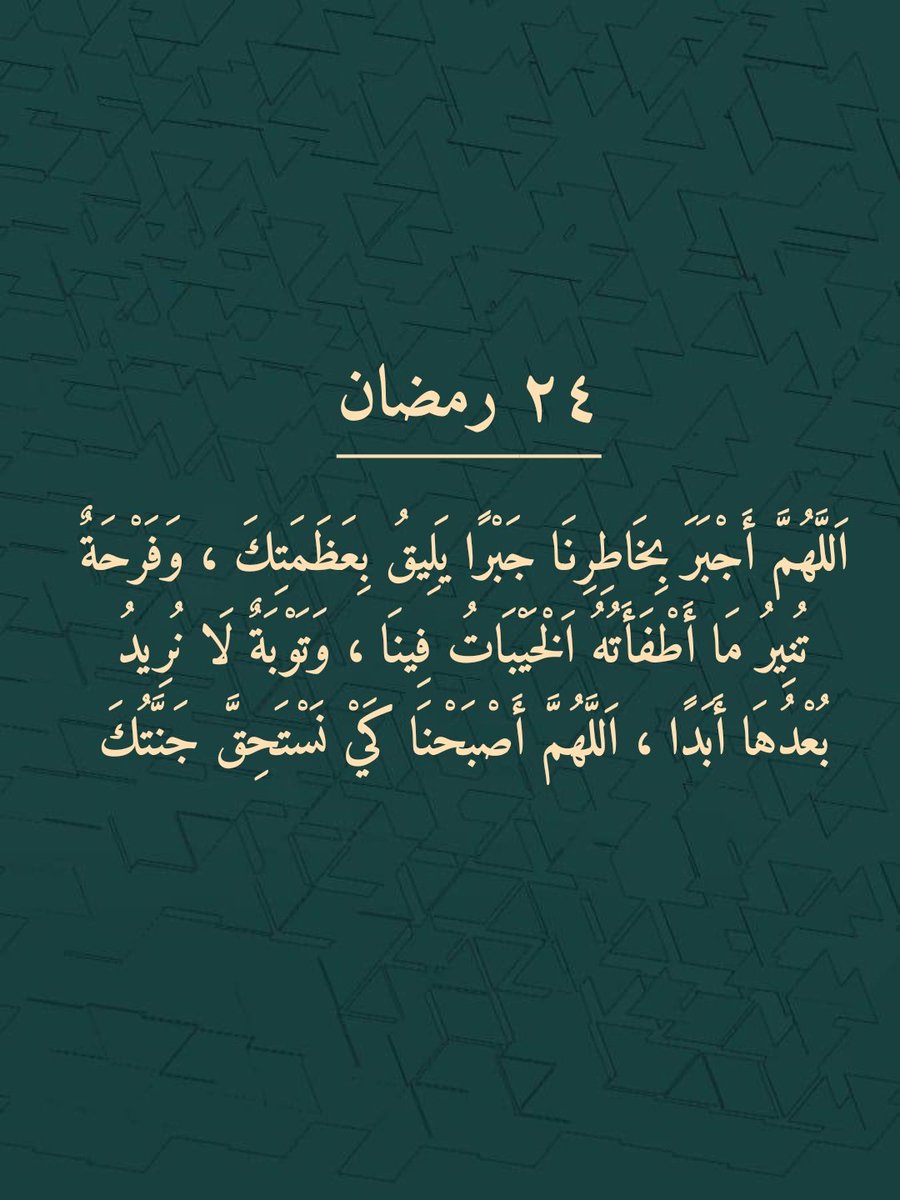 ٢٤ رمضان
اَللَّهُمَّ أَجْبَرَ بِخَاطِرِنَا جَبْرًا يَلِيقُ بِعَظَمَتِكَ ، وَفَرْحَةٌ
تُنِيرُ مَا أَطْفَأَتُهُ اَلْخَيْبَاتُ فِينَا ، وَتَوْبَةٌ لَا نُرِيدُ
بُعْدُهَا أَبَدًا ، اَللَّهُمَّ أَصْبَحْنَا كَيْ نَسْتَحِقَّ جَنَّتُكَ